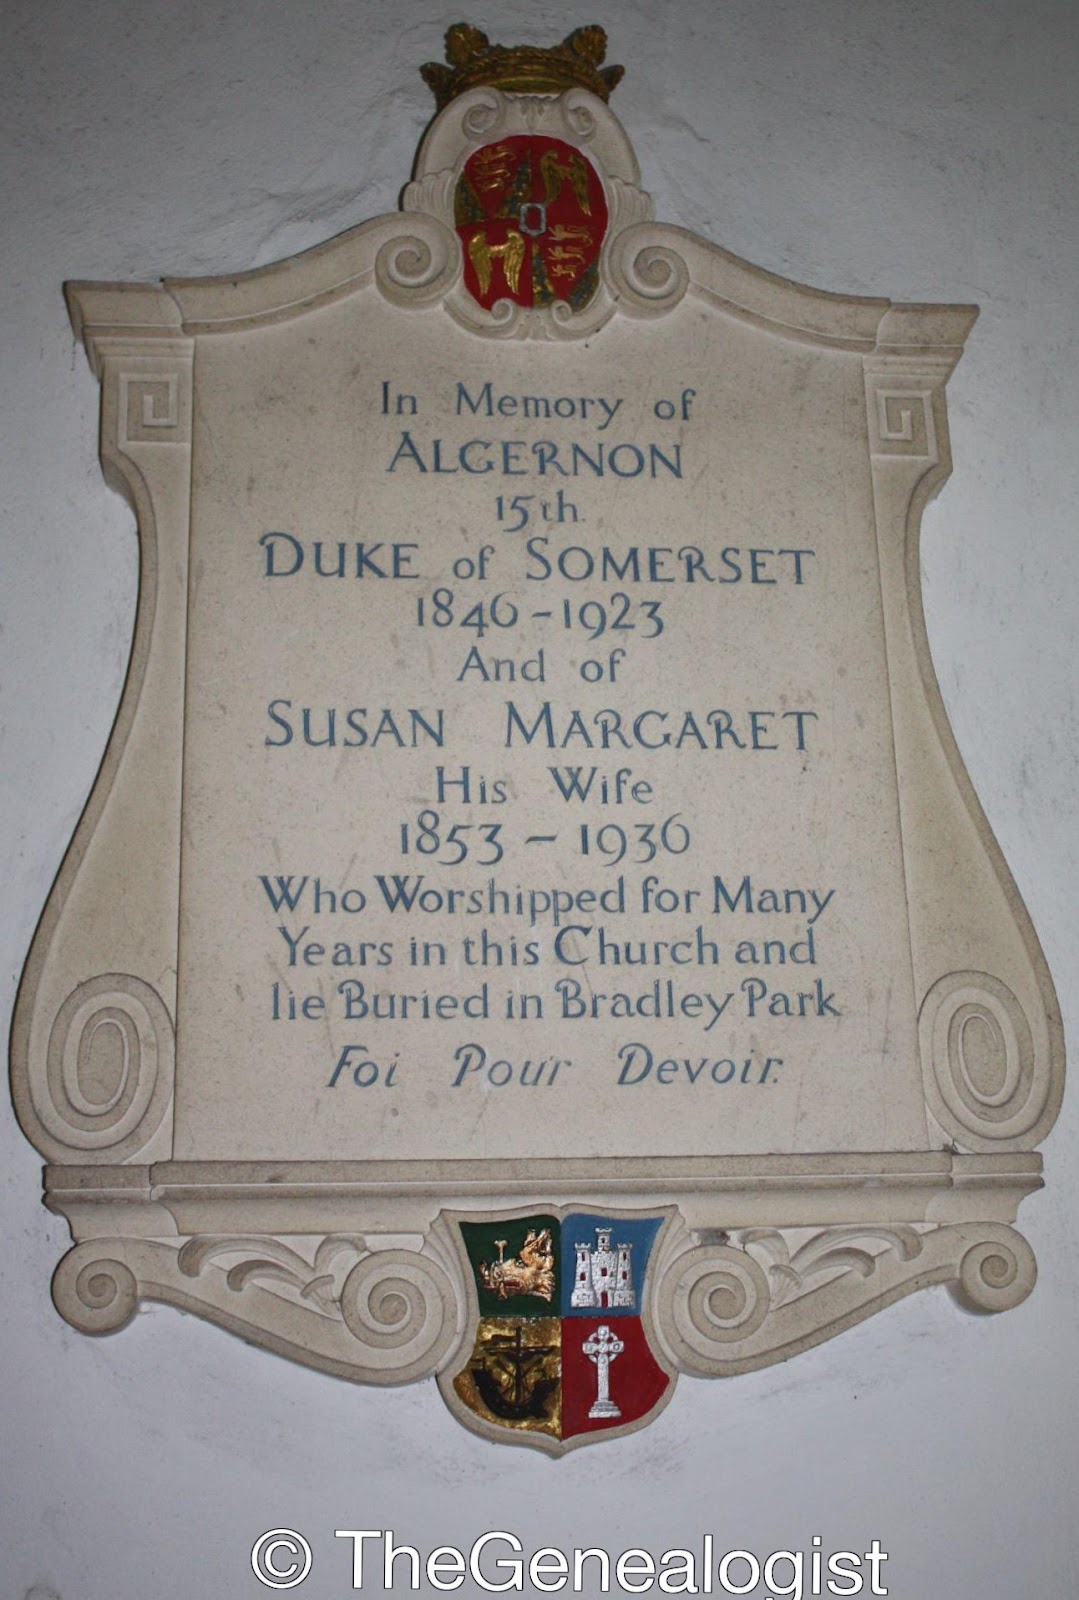 In Memory of
ALGERNON
15th.
DUKE of SOMERSET
1846 - 1923
And of
SUSAN MARGARET
His Wife
1853 - 1936
Who Worshipped for Many
Years in this Church and
lie Buried in Bradley Park
Foi Pour Devoir.
© TheGenealogist